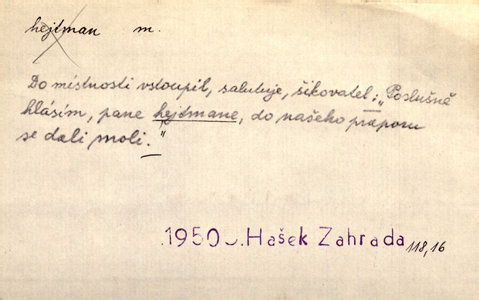 hejtman m.
Do místnosti vstoupil, salutuje, šikovatel: „Poslušně
hlásím, pane hejtmane, do našeho praporu
se dali moli."
1950 J. Hašek Zahrada 118,16